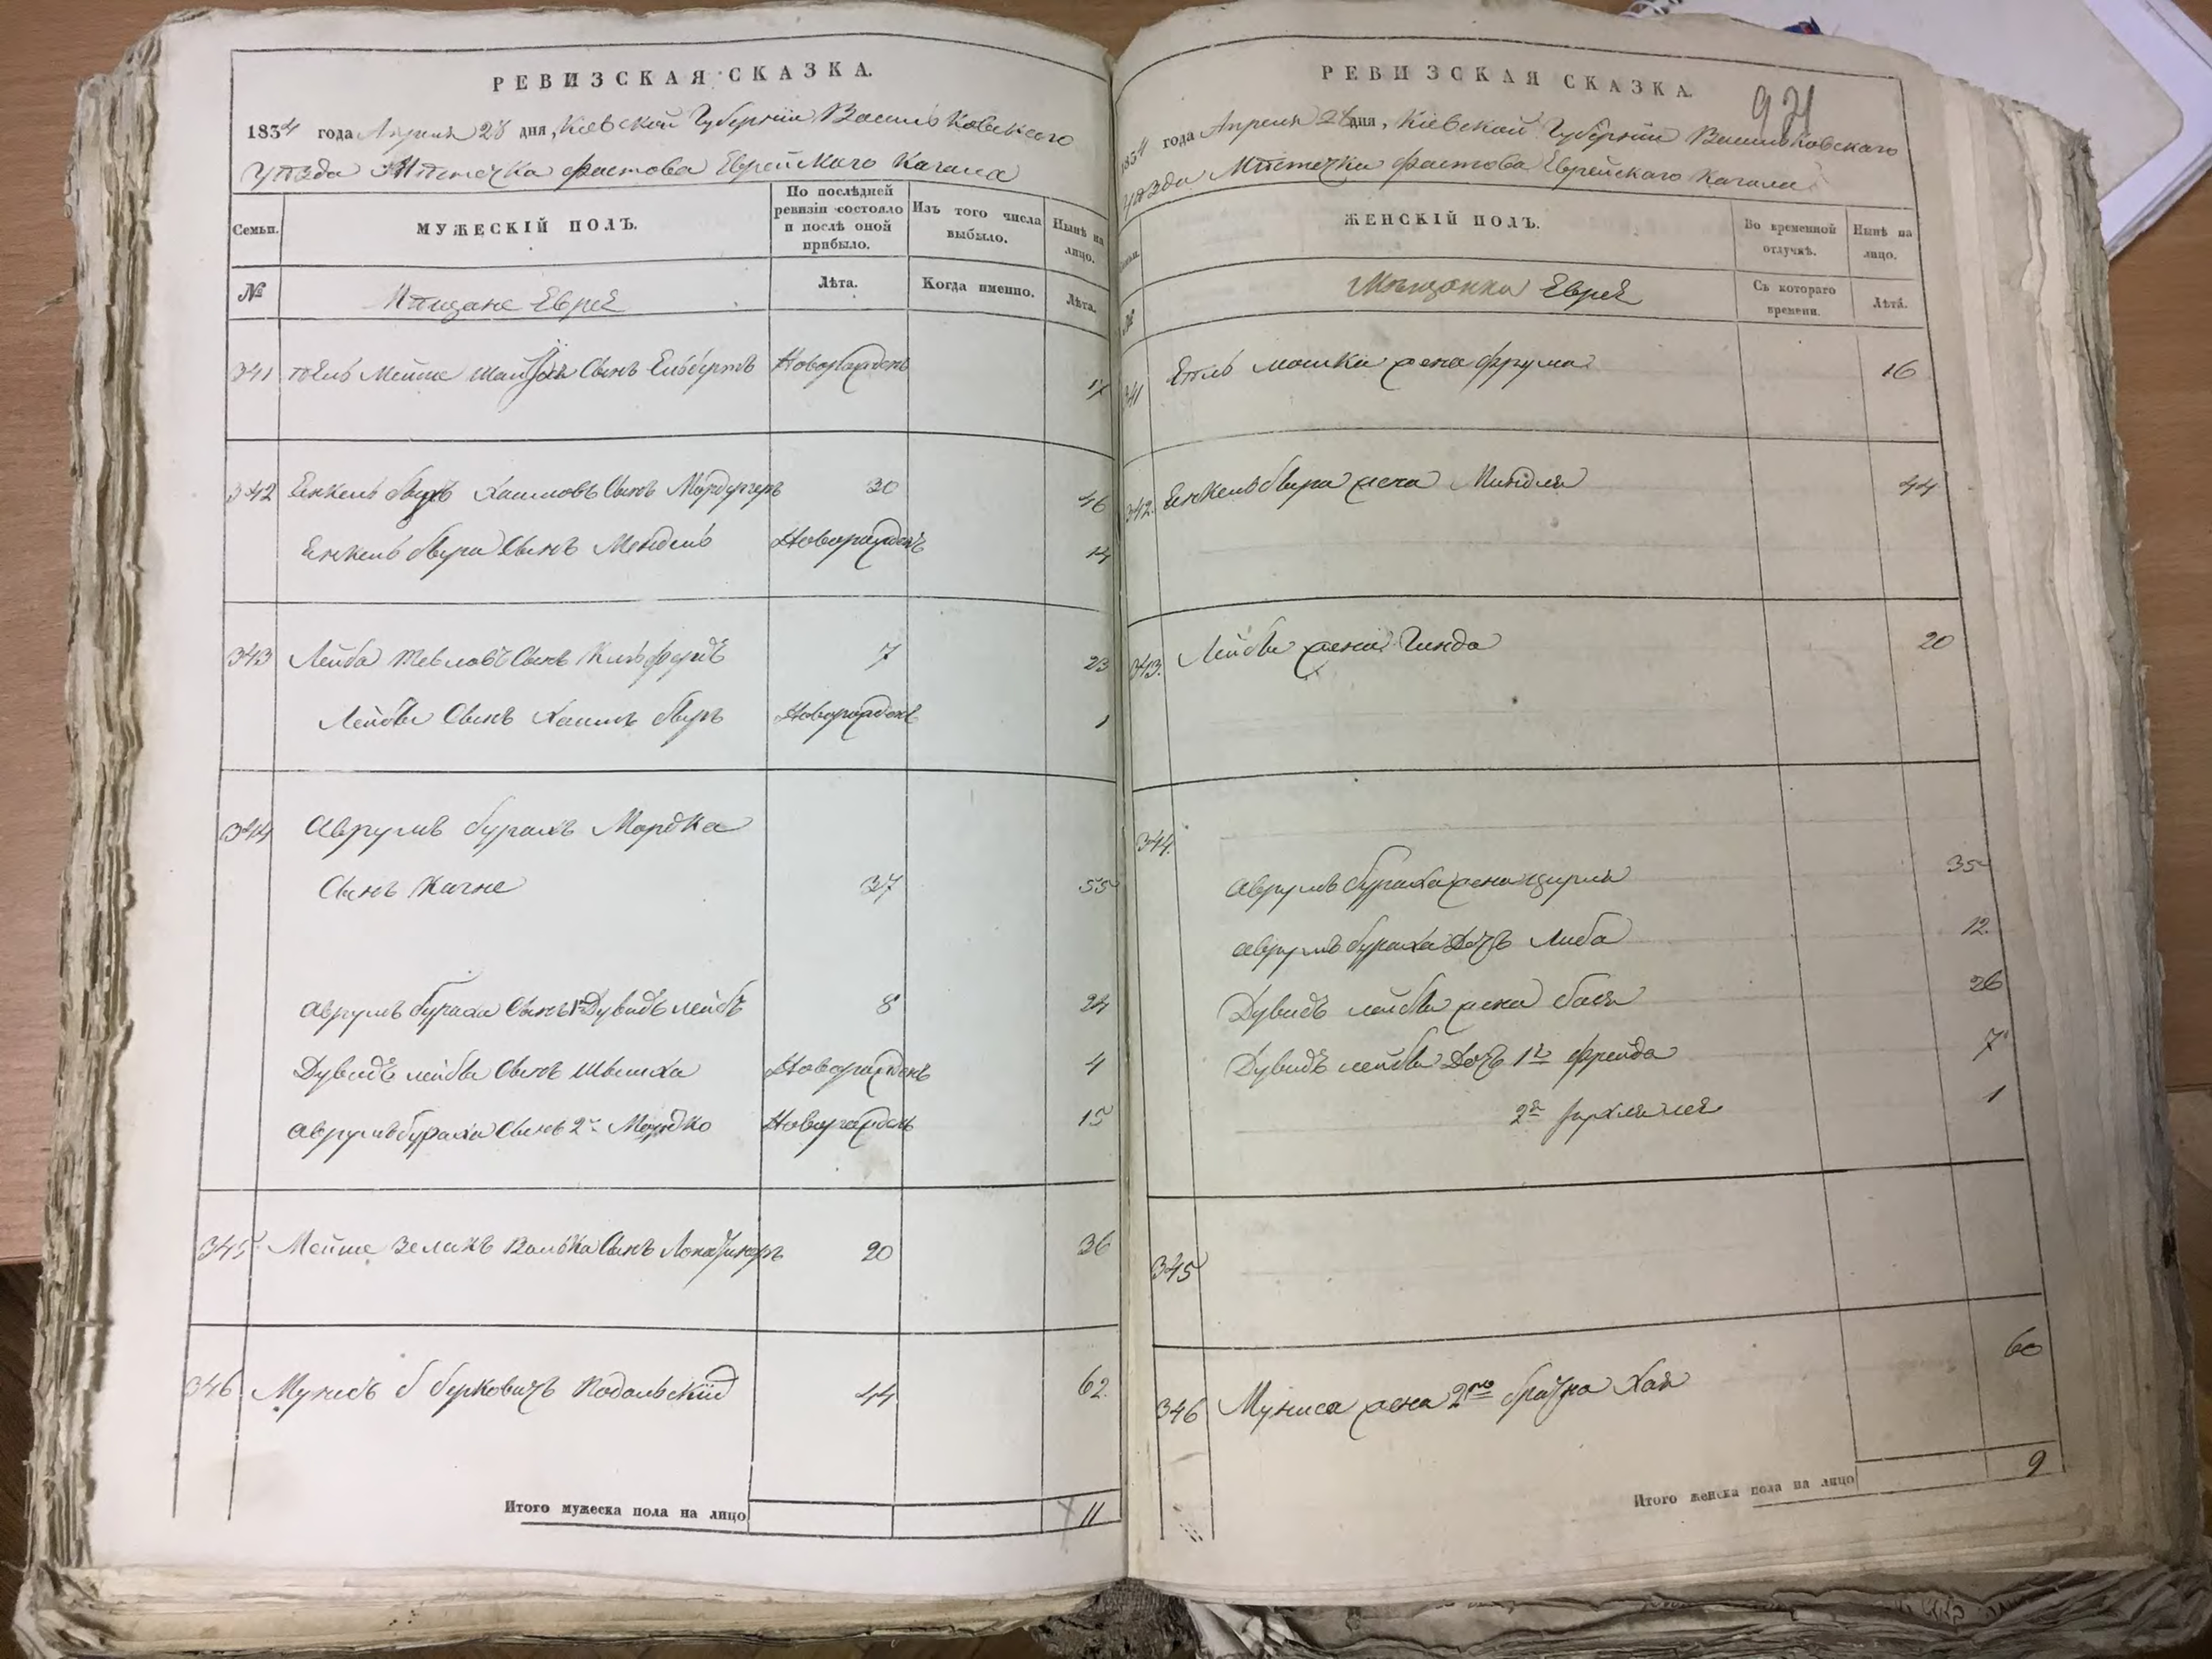 РЕВИЗСКАЯ СКАЗКА.
1834 года Апреля 28 дня, Кіевской Губерніи Васильковского
уѣзда Мѣстечка Фастова Еврейскаго Кагала
Семьи.
МУЖЕСКІЙ ПОЛЪ.
По послѣдней ревизіи состояло и послѣ оной прибыло.
Изъ того числа выбыло.
Нынѣ на лицо.
№
Мѣщане Евреи
Лѣта.
Когда именно.
Лѣта.
341 Мейше Сынъ Новорожденъ 17
342 Енкель Хаимовъ Сынъ 30 46
Енкель Сынъ Мендель Новорожденъ 14
343 Лейба Тевловъ Сынъ 7 23
Лейбы Сынъ Хаимъ Новорожденъ 1
344 Аврумъ бурахъ Мордка
Сынъ Кагне 37 55
Аврумъ бураха Сынъ 1й Дувидъ лейбъ 8 24
Дувидъ лейбы Сынъ Новорожденъ 4
Аврумъ бураха Сынъ 2й Мордко Новорожденъ 15
345 Мейше Зелакъ Волька Сынъ 20 36
346 Мунесъ Берковичъ Подольскій 44 62
Итого мужеска пола на лицо 11
РЕВИЗСКАЯ СКАЗКА.
921
1834 года Апреля 28 дня, Кіевской Губерніи Васильковскаго
уѣзда Мѣстечка Фастова Еврейскаго Кагала
Семьи.
ЖЕНСКІЙ ПОЛЪ.
Во временной отлучкѣ.
Нынѣ на лицо.
№
Мѣщанки Евреи
Съ котораго времени.
Лѣта.
341 Мошки жена фрума 16
342. жена 44
343. Лейбы жена Гинда 20
344.
Аврумъ бураха жена цирля 35
Аврумъ бураха Дочь Либа 12.
Дувидъ лейбы жена бася 26
Дувидъ лейбы Дочь 1я фрейда 7
2я 1
345
346 Муниса жена 2го брачна Хая 60
Итого женска пола на лицо 9